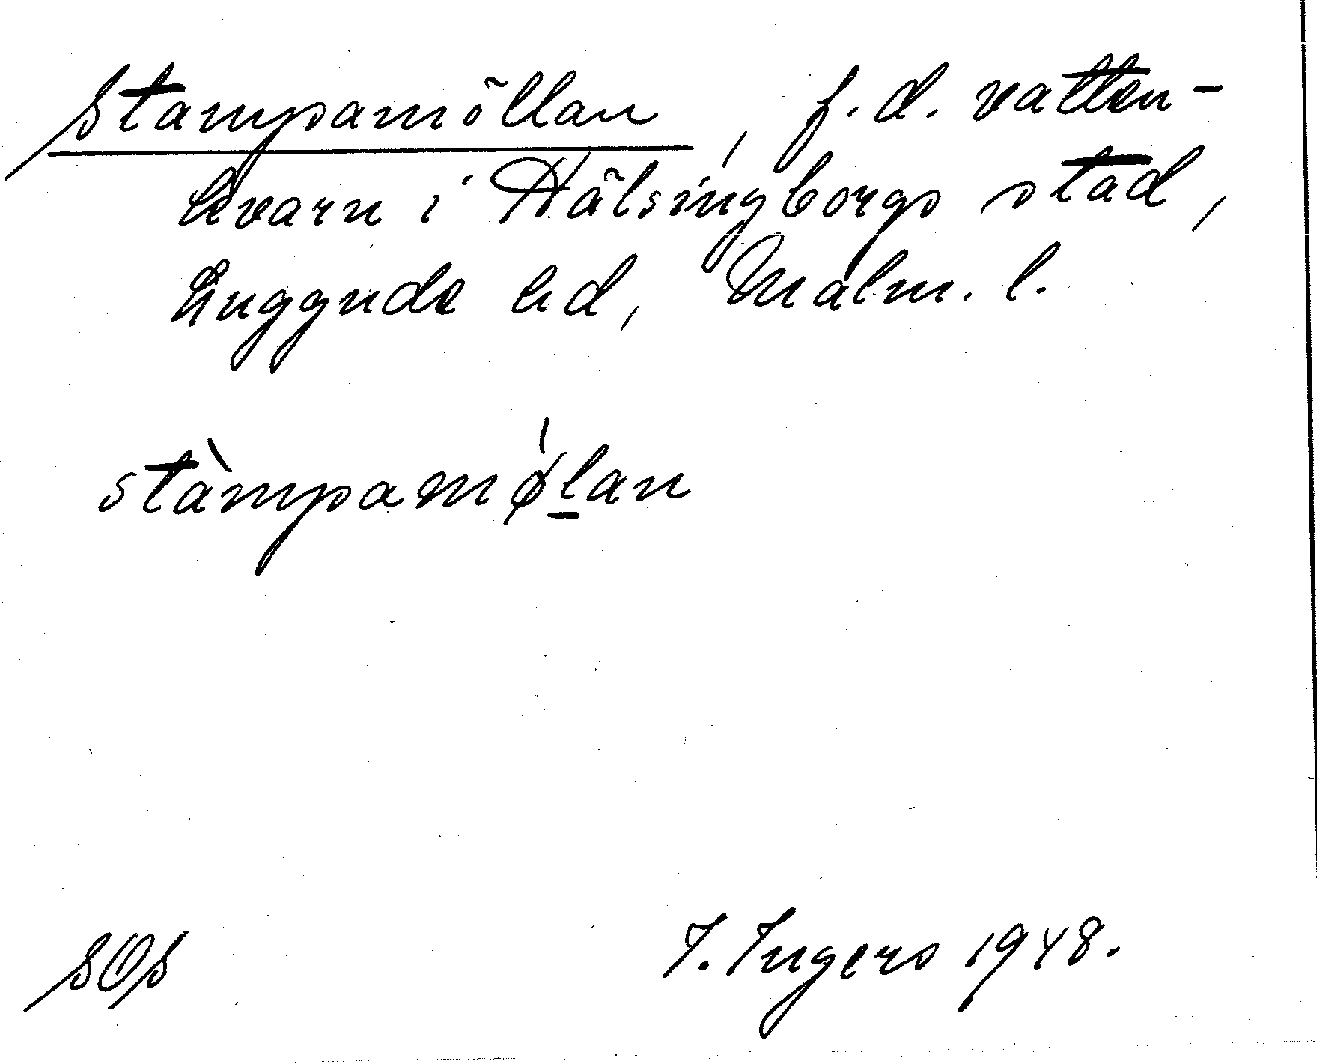 Stampamöllan, f.d. vatten-
kvarn i Hälsingborgs stad,
Luggude hd, Malm. l.
stàmpamǿl̲an
SOS
I. Ingers 1948.